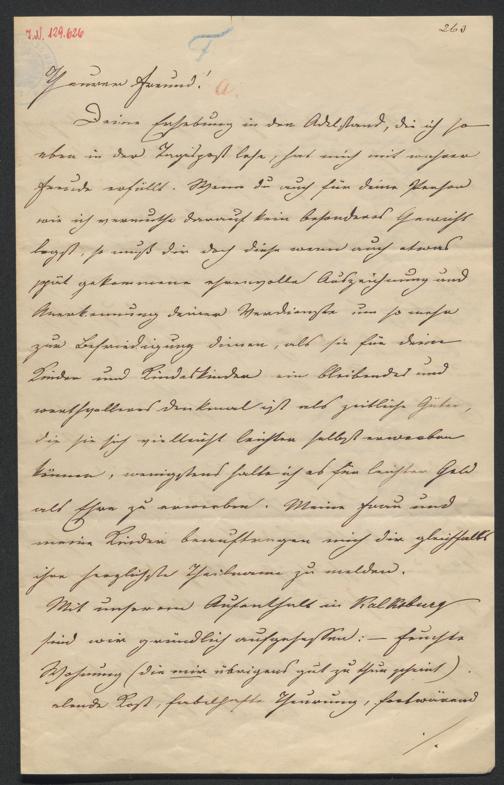 I.N. 129.626
263
F
a.
Theurer Freund!
Deine Erhebung in den Adelstand, die ich so
eben in der Tagespost lese, hat mich mit wahrer
Freude erfüllt. Wenn du auch für deine Person
wie ich vermuthe darauf kein besonderes Gewicht
legst, so muß dir doch diese wenn auch etwas
spät gekommene ehrenvolle Auszeichnung und
Anerkennung deiner Verdienste um so mehr
zur Befriedigung dienen, als sie für deine
Kinder und Kindeskinder ein bleibendes und
werthvolleres Denkmal ist als zeitliche Güter,
die sie sich vielleicht leichter selbst erwerben
können, wenigstens halte ich es für leichter Geld
als Ehre zu erwerben. Meine Frau und
meine Kinder beauftragen mich dir gleichfalls
ihre herzlichste Theilname zu melden.
Mit unserem Aufenthalt in Kalksburg
sind wir gründlich aufgesessen: – feuchte
Wohnung (die mir übrigens gut zu thun scheint)
elende Kost, fabelhafte Theurung, fortwärend
./.